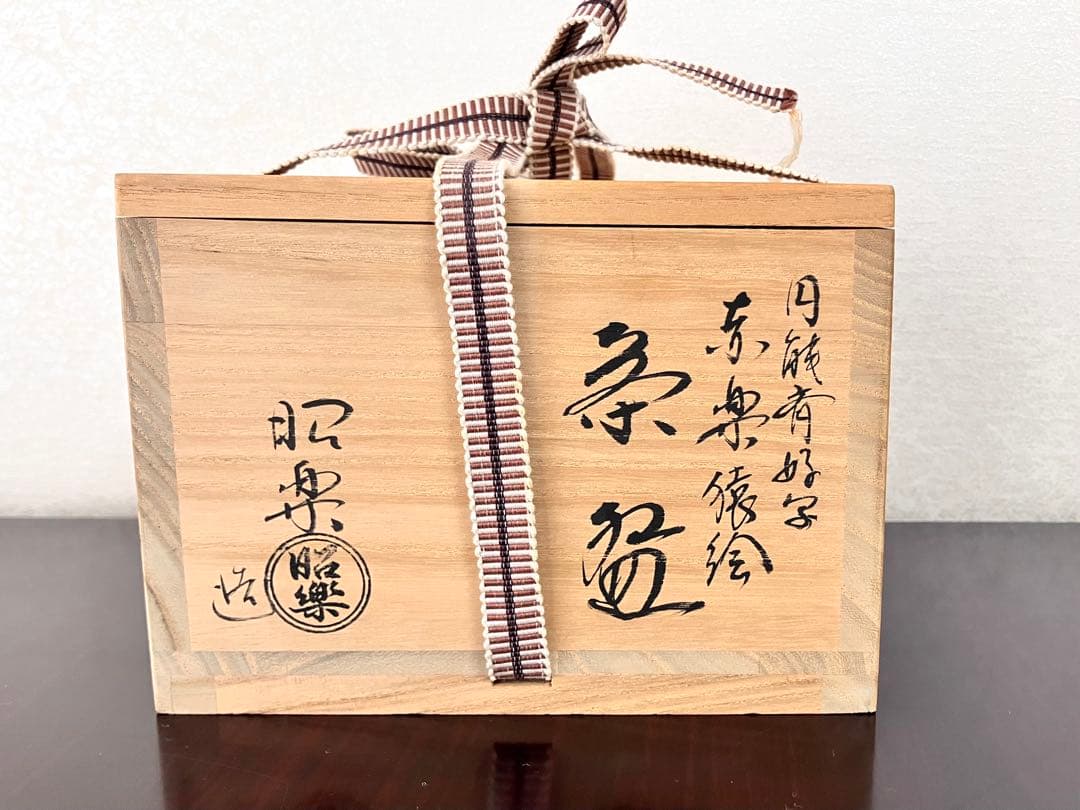 円能斎好写
赤楽猿絵
茶盌
昭楽
造
昭樂